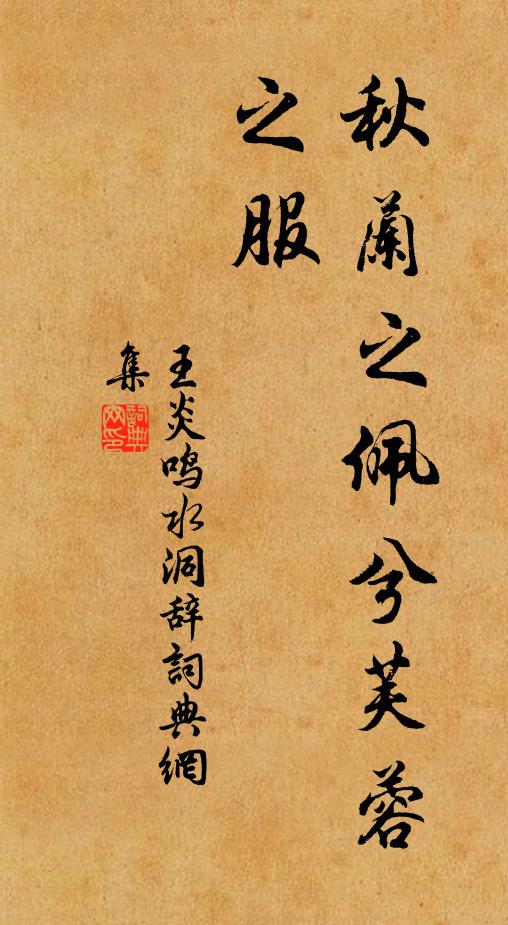 秋蘭之佩兮芙蓉
之服
王炎鸣水洞辞詞典網
集
詞典网印